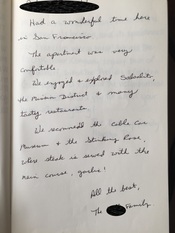 Had a wonderful time here
in San Francisco.
The apartment was very
comfortable.
We enjoyed & explored Sausalito,
the Mission District & many
tasty restaurants.
We recommend the Cable Car
Museum & the Stinking Rose,
where steak is served with the
main course, garlic!
All the best,
The Family